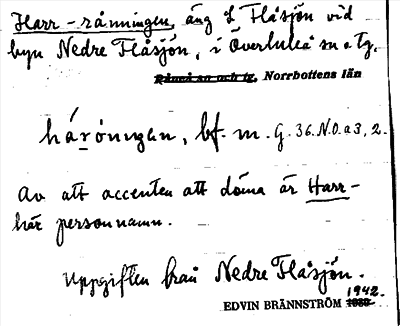 Harr-rånningen, äng S Flåsjön vid
byn Nedre Flåsjön, i Överluleå sn o tg.
Råneå sn och tg, Norrbottens län
hárönıŋan, bf. m. G. 36. N.O. a 3, 2.
Av att accenten att döma är Harr-
här personnamn.
Uppgiften från Nedre Flåsjön.
1942.
EDVIN BRÄNNSTRÖM 1939